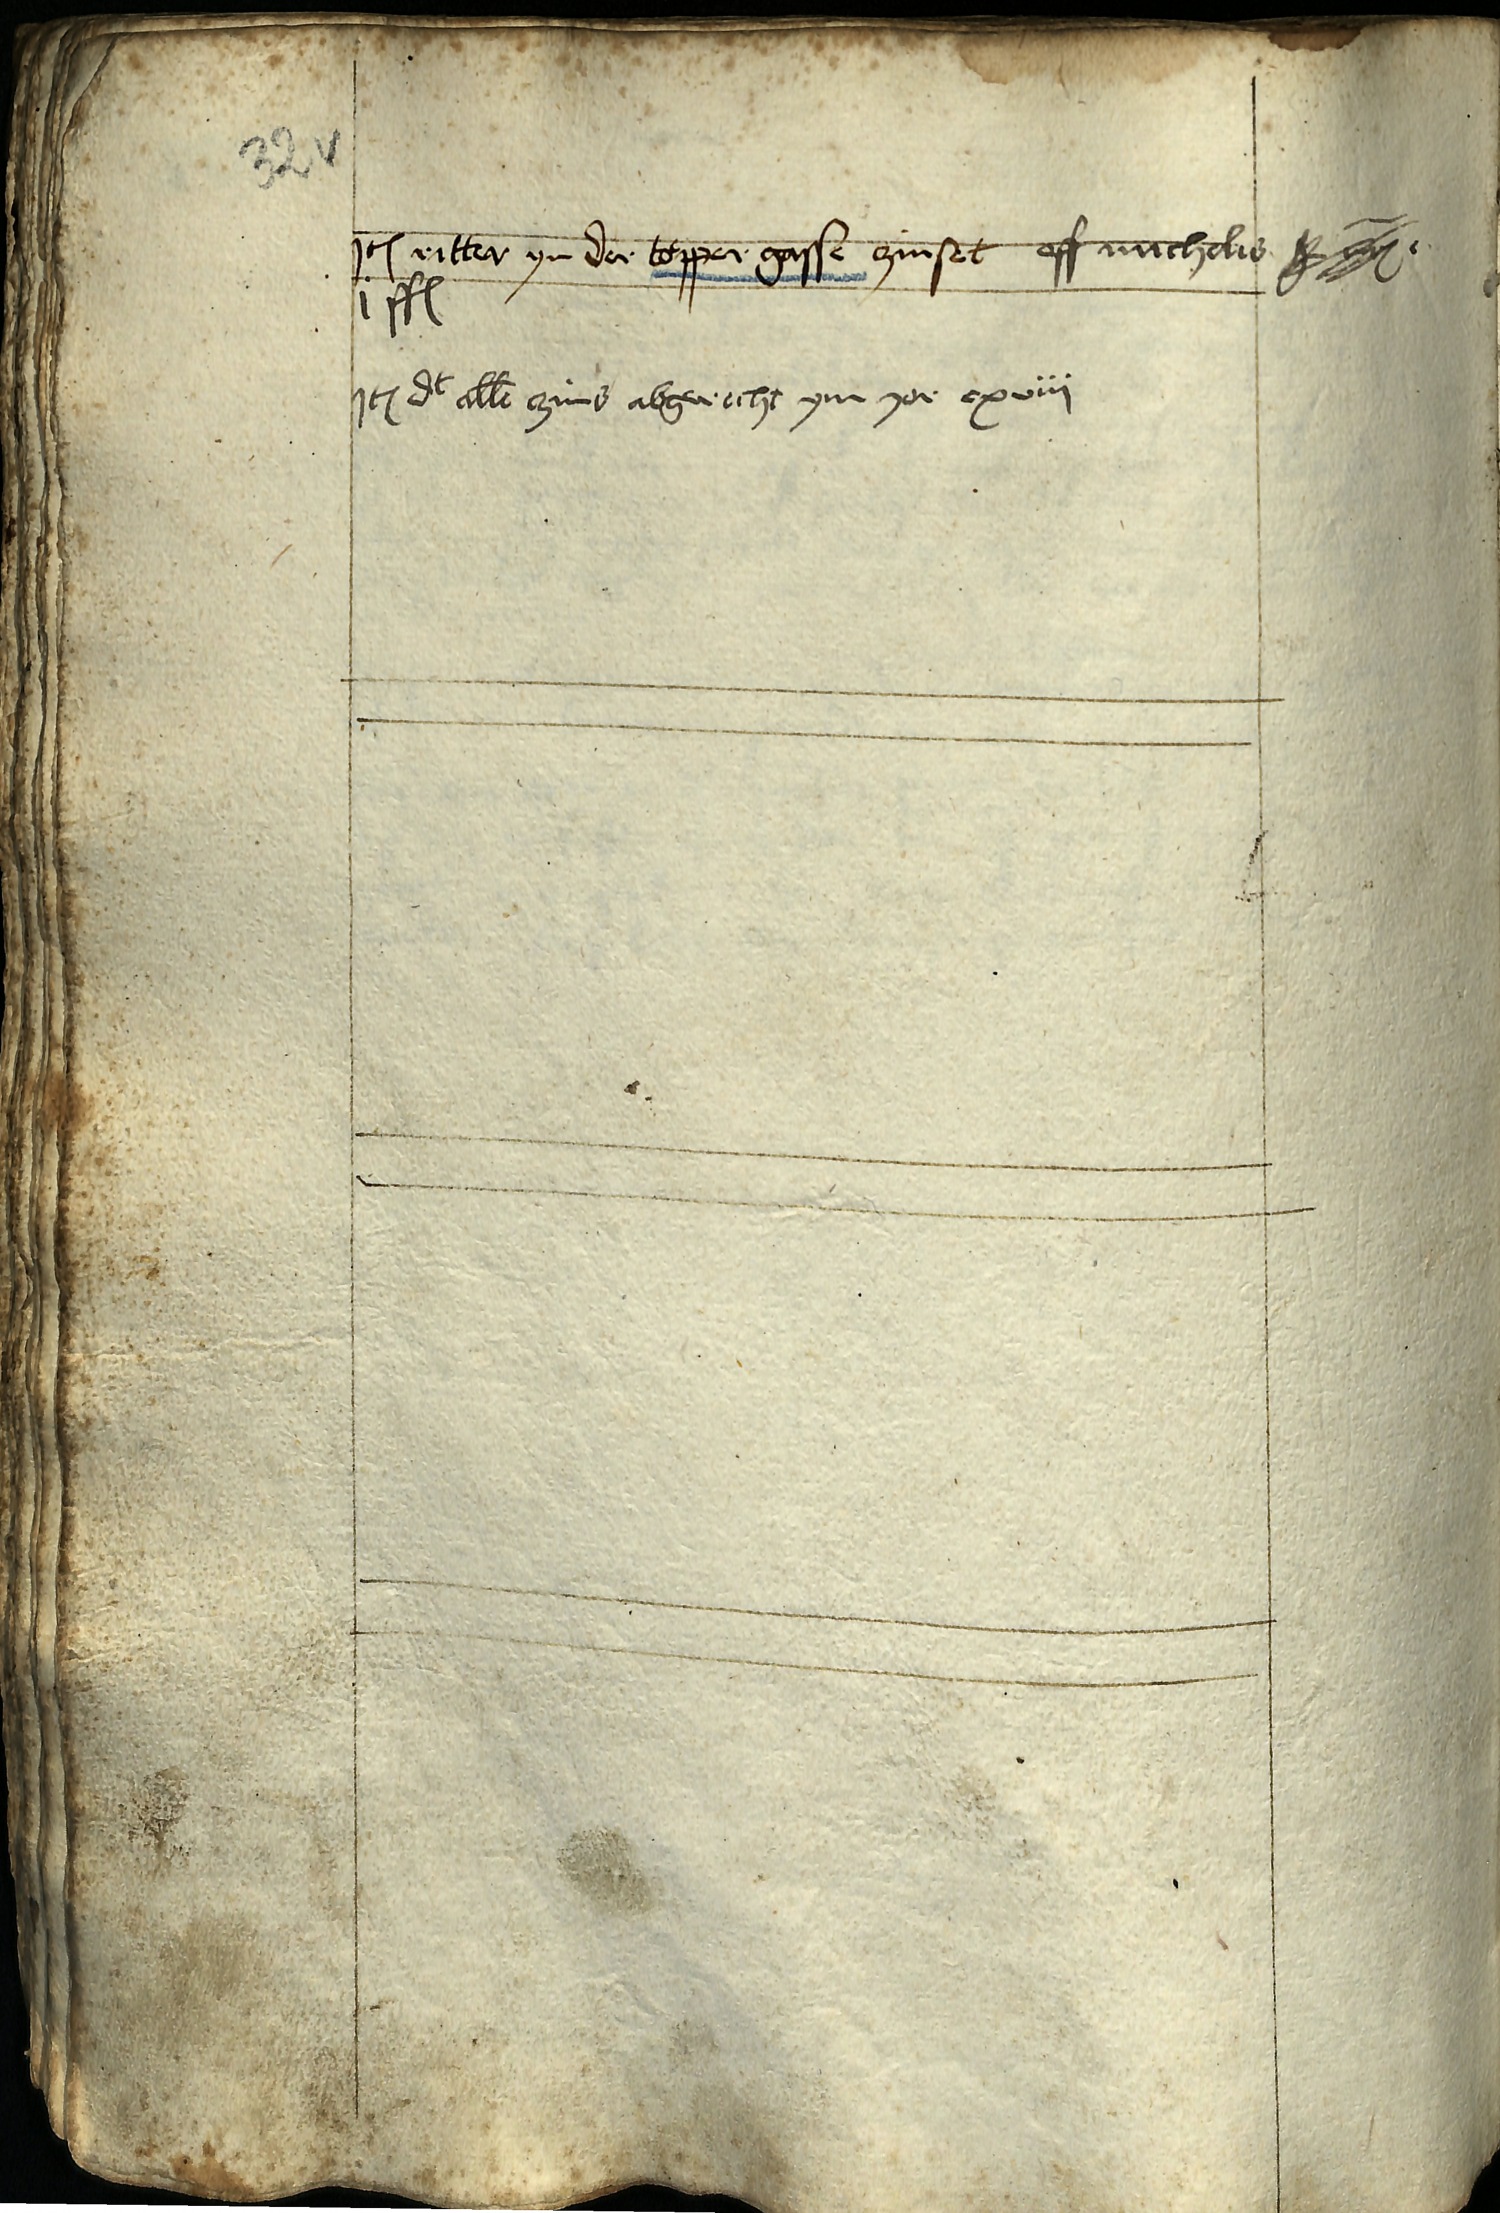 32v
Jt ritter yn der topper gasse zinset off michelis
i ßl
Jt dt alle zins abgerecht ym yor cxviii